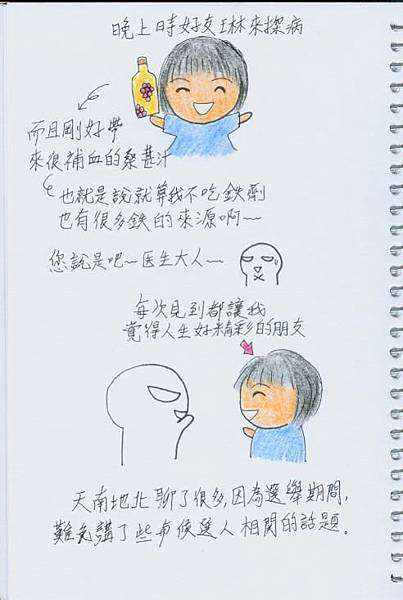 晚上時好友琳來探病
而且剛好帶
來很補血的桑葚汁
也就是說就算我不吃鉄劑
也有很多鉄的來源啊~~
您說是吧~医生大人~~
每次見到都讓我
覺得人生好精彩的朋友
天南地北聊了很多,因為選舉期間,
難免講了些市候選人相関的話題。